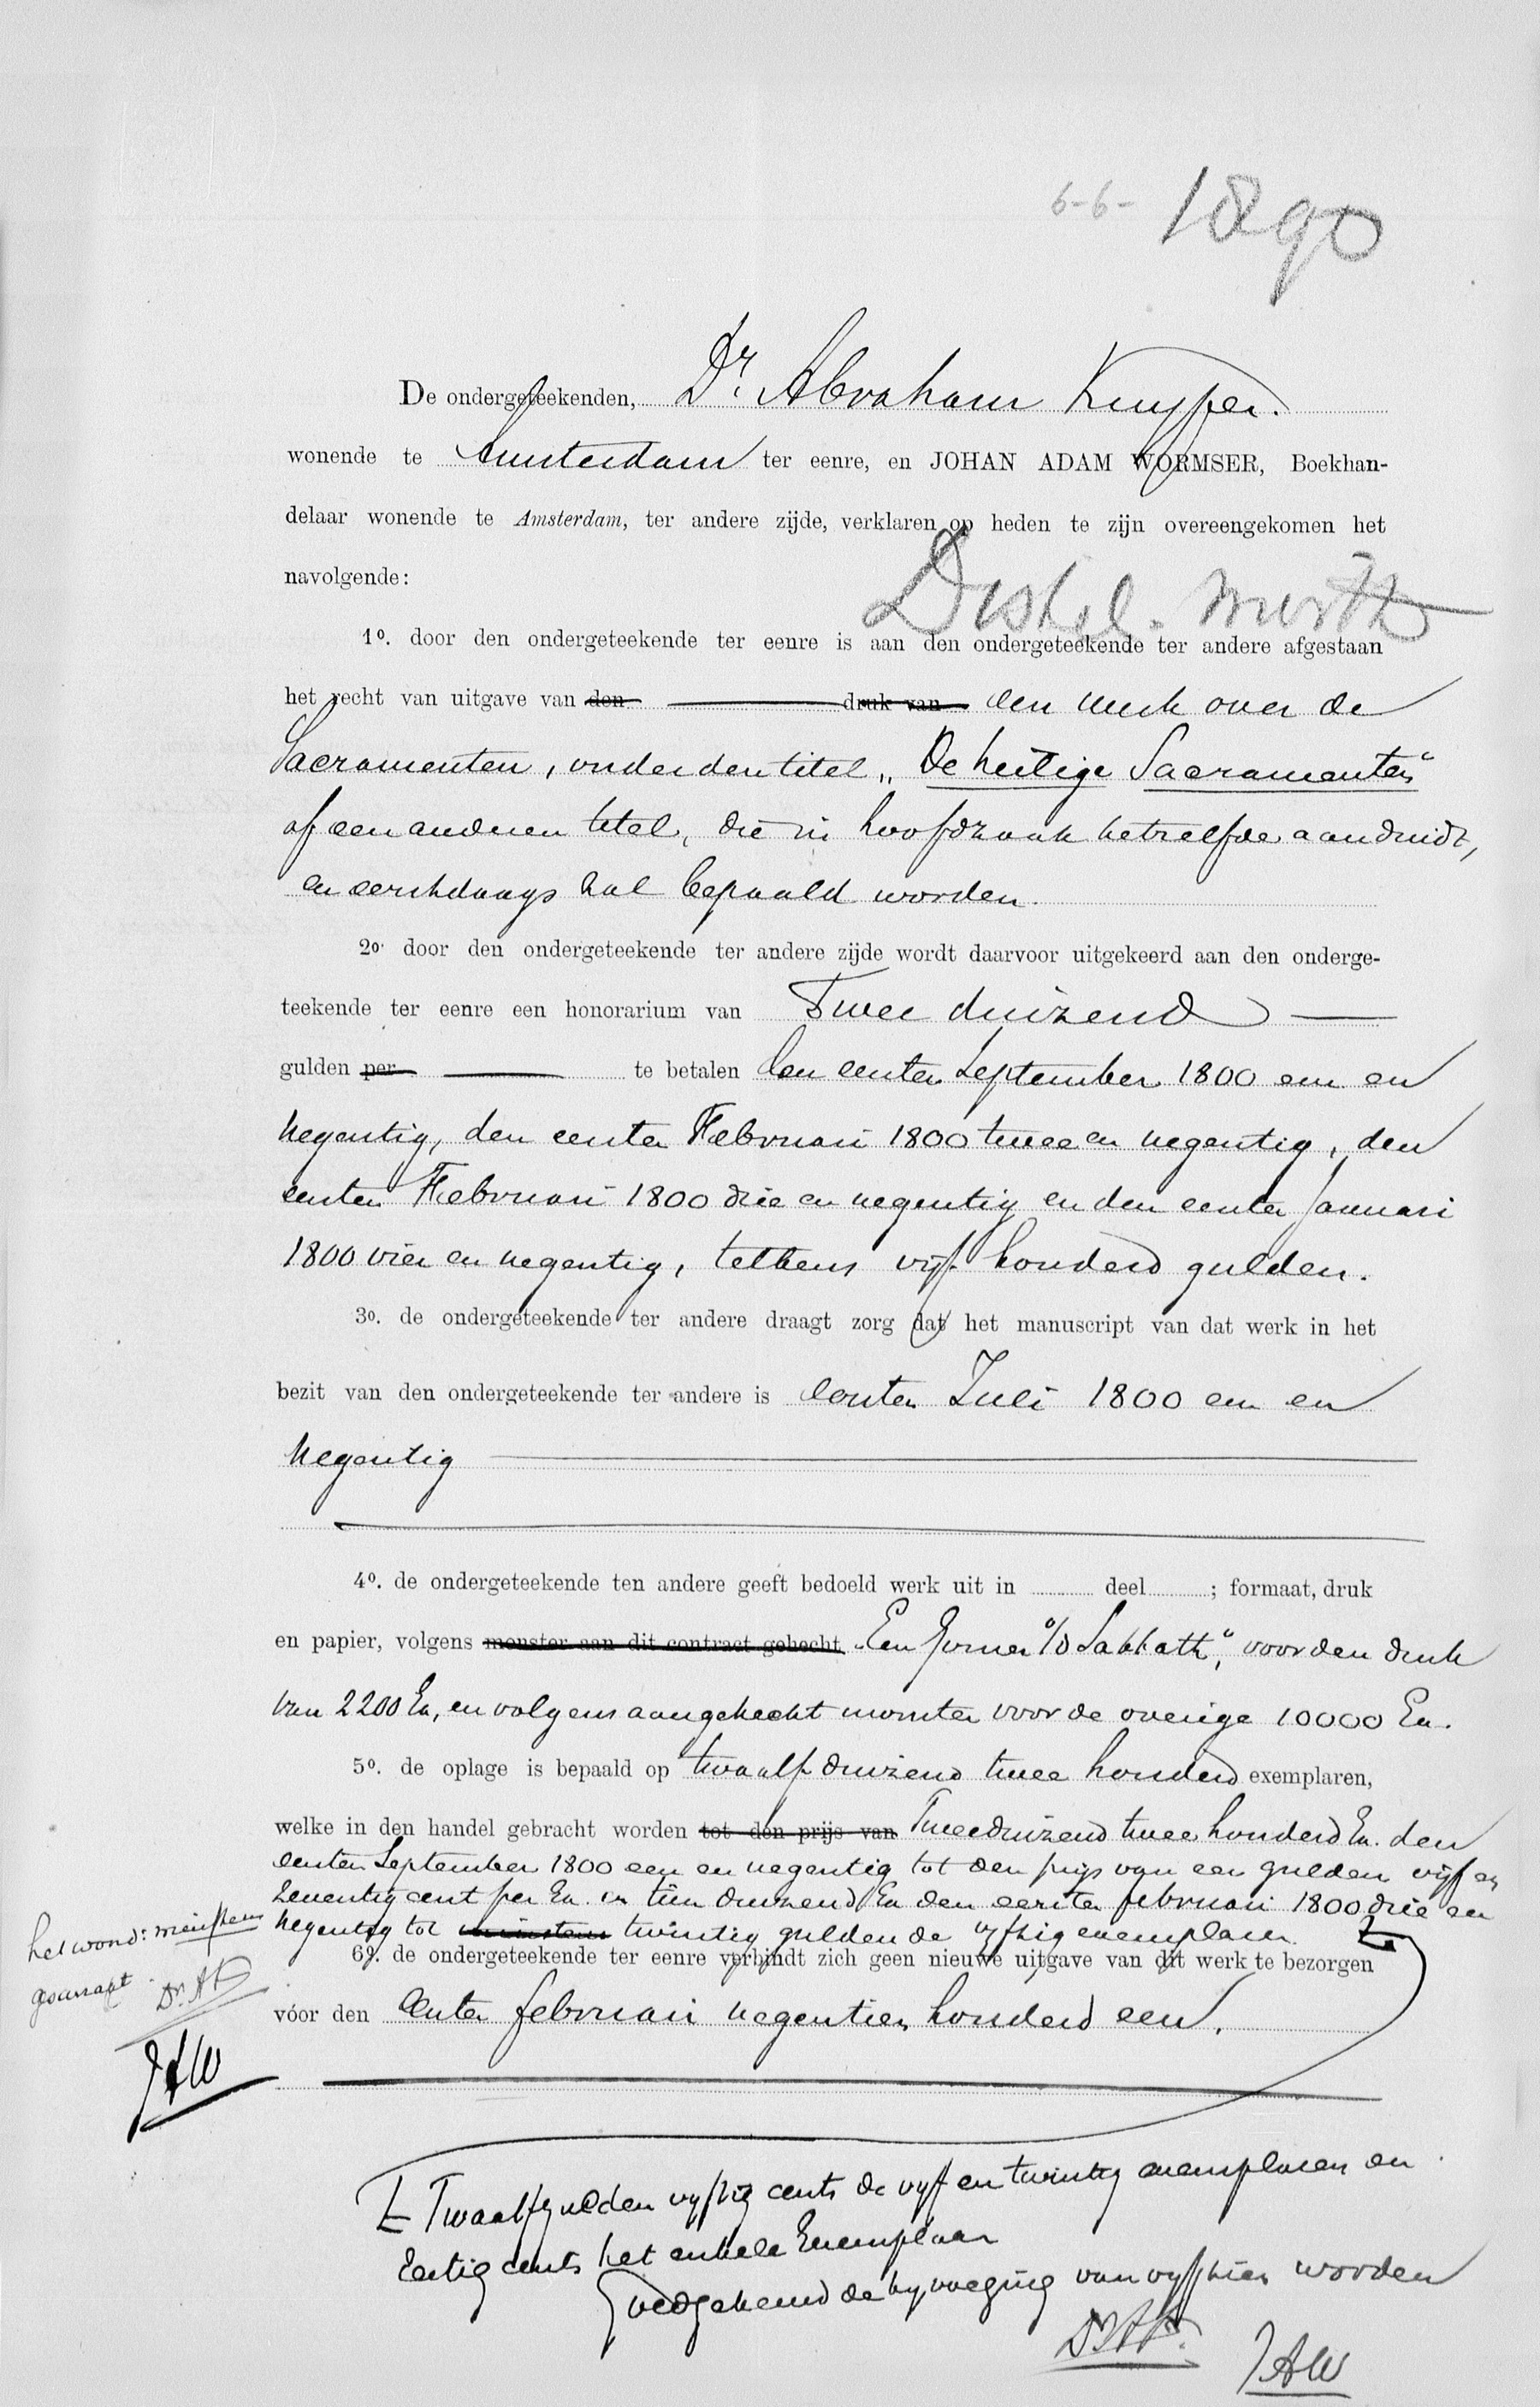 6-6- 1890
De ondergeteekenden, Dr. Abraham Kuyper.
wonende te Amsterdam ter eenre, en JOHAN ADAM WORMSER, Boekhan-
delaar wonende te Amsterdam, ter andere zijde, verklaren op heden te zijn overeengekomen het
navolgende:
1o. door den ondergeteekende ter eenre is aan den ondergeteekende ter andere afgestaan
het recht van uitgave van den druk van een werk over de
Sacramenten, onder den titel „De heilige Sacramenten"
of een anderen titel, die in hoofdzaak hetzelfde aanduidt,
en eerstdaags zal bepaald worden.
2o. door den ondergeteekende ter andere zijde wordt daarvoor uitgekeerd aan den onderge-
teekende ter eenre een honorarium van Twee duizend
gulden per te betalen den eersten September 1800 een en
negentig, den eersten Februari 1800 twee en negentig, den
eersten Februari 1800 drie en negentig en den eersten Januari
1800 vier en negentig, telkens vijf honderd gulden.
3o. de ondergeteekende ter andere draagt zorg dat het manuscript van dat werk in het
bezit van den ondergeteekende ter andere is eersten Juli 1800 een en
negentig
4o. de ondergeteekende ten andere geeft bedoeld werk uit in deel ; formaat, druk
en papier, volgens monster aan dit contract gehecht Sabbath", voor den druk
van 2200 Ex, en volgens aangehecht monster voor de overige 10000 Ex.
5o. de oplage is bepaald op twaalf duizend twee honderd exemplaren,
welke in den handel gebracht worden tot den prijs van Tweeduizend twee honderd Ex. den
eersten September 1800 een en negentig tot den prijs van een gulden vijf en
zeventig cent per Ex. en tien duizend Ex den eersten februari 1800 drie en
negentig tot minstens twintig gulden de vyftig exemplaren.
het woord: minstens
geschrapt Dr. A K
JAW
6o. de ondergeteekende ter eenre verbindt zich geen nieuwe uitgave van dit werk te bezorgen
vóor den eersten februari negentien honderd een.
Twaalf gulden vyftig cents de vyf en twintig exemplaren en
zestig cents het enkele Exemplaar
Goedgekeurd de byvoeging van vyftien woorden
Dr. A K.
JAW